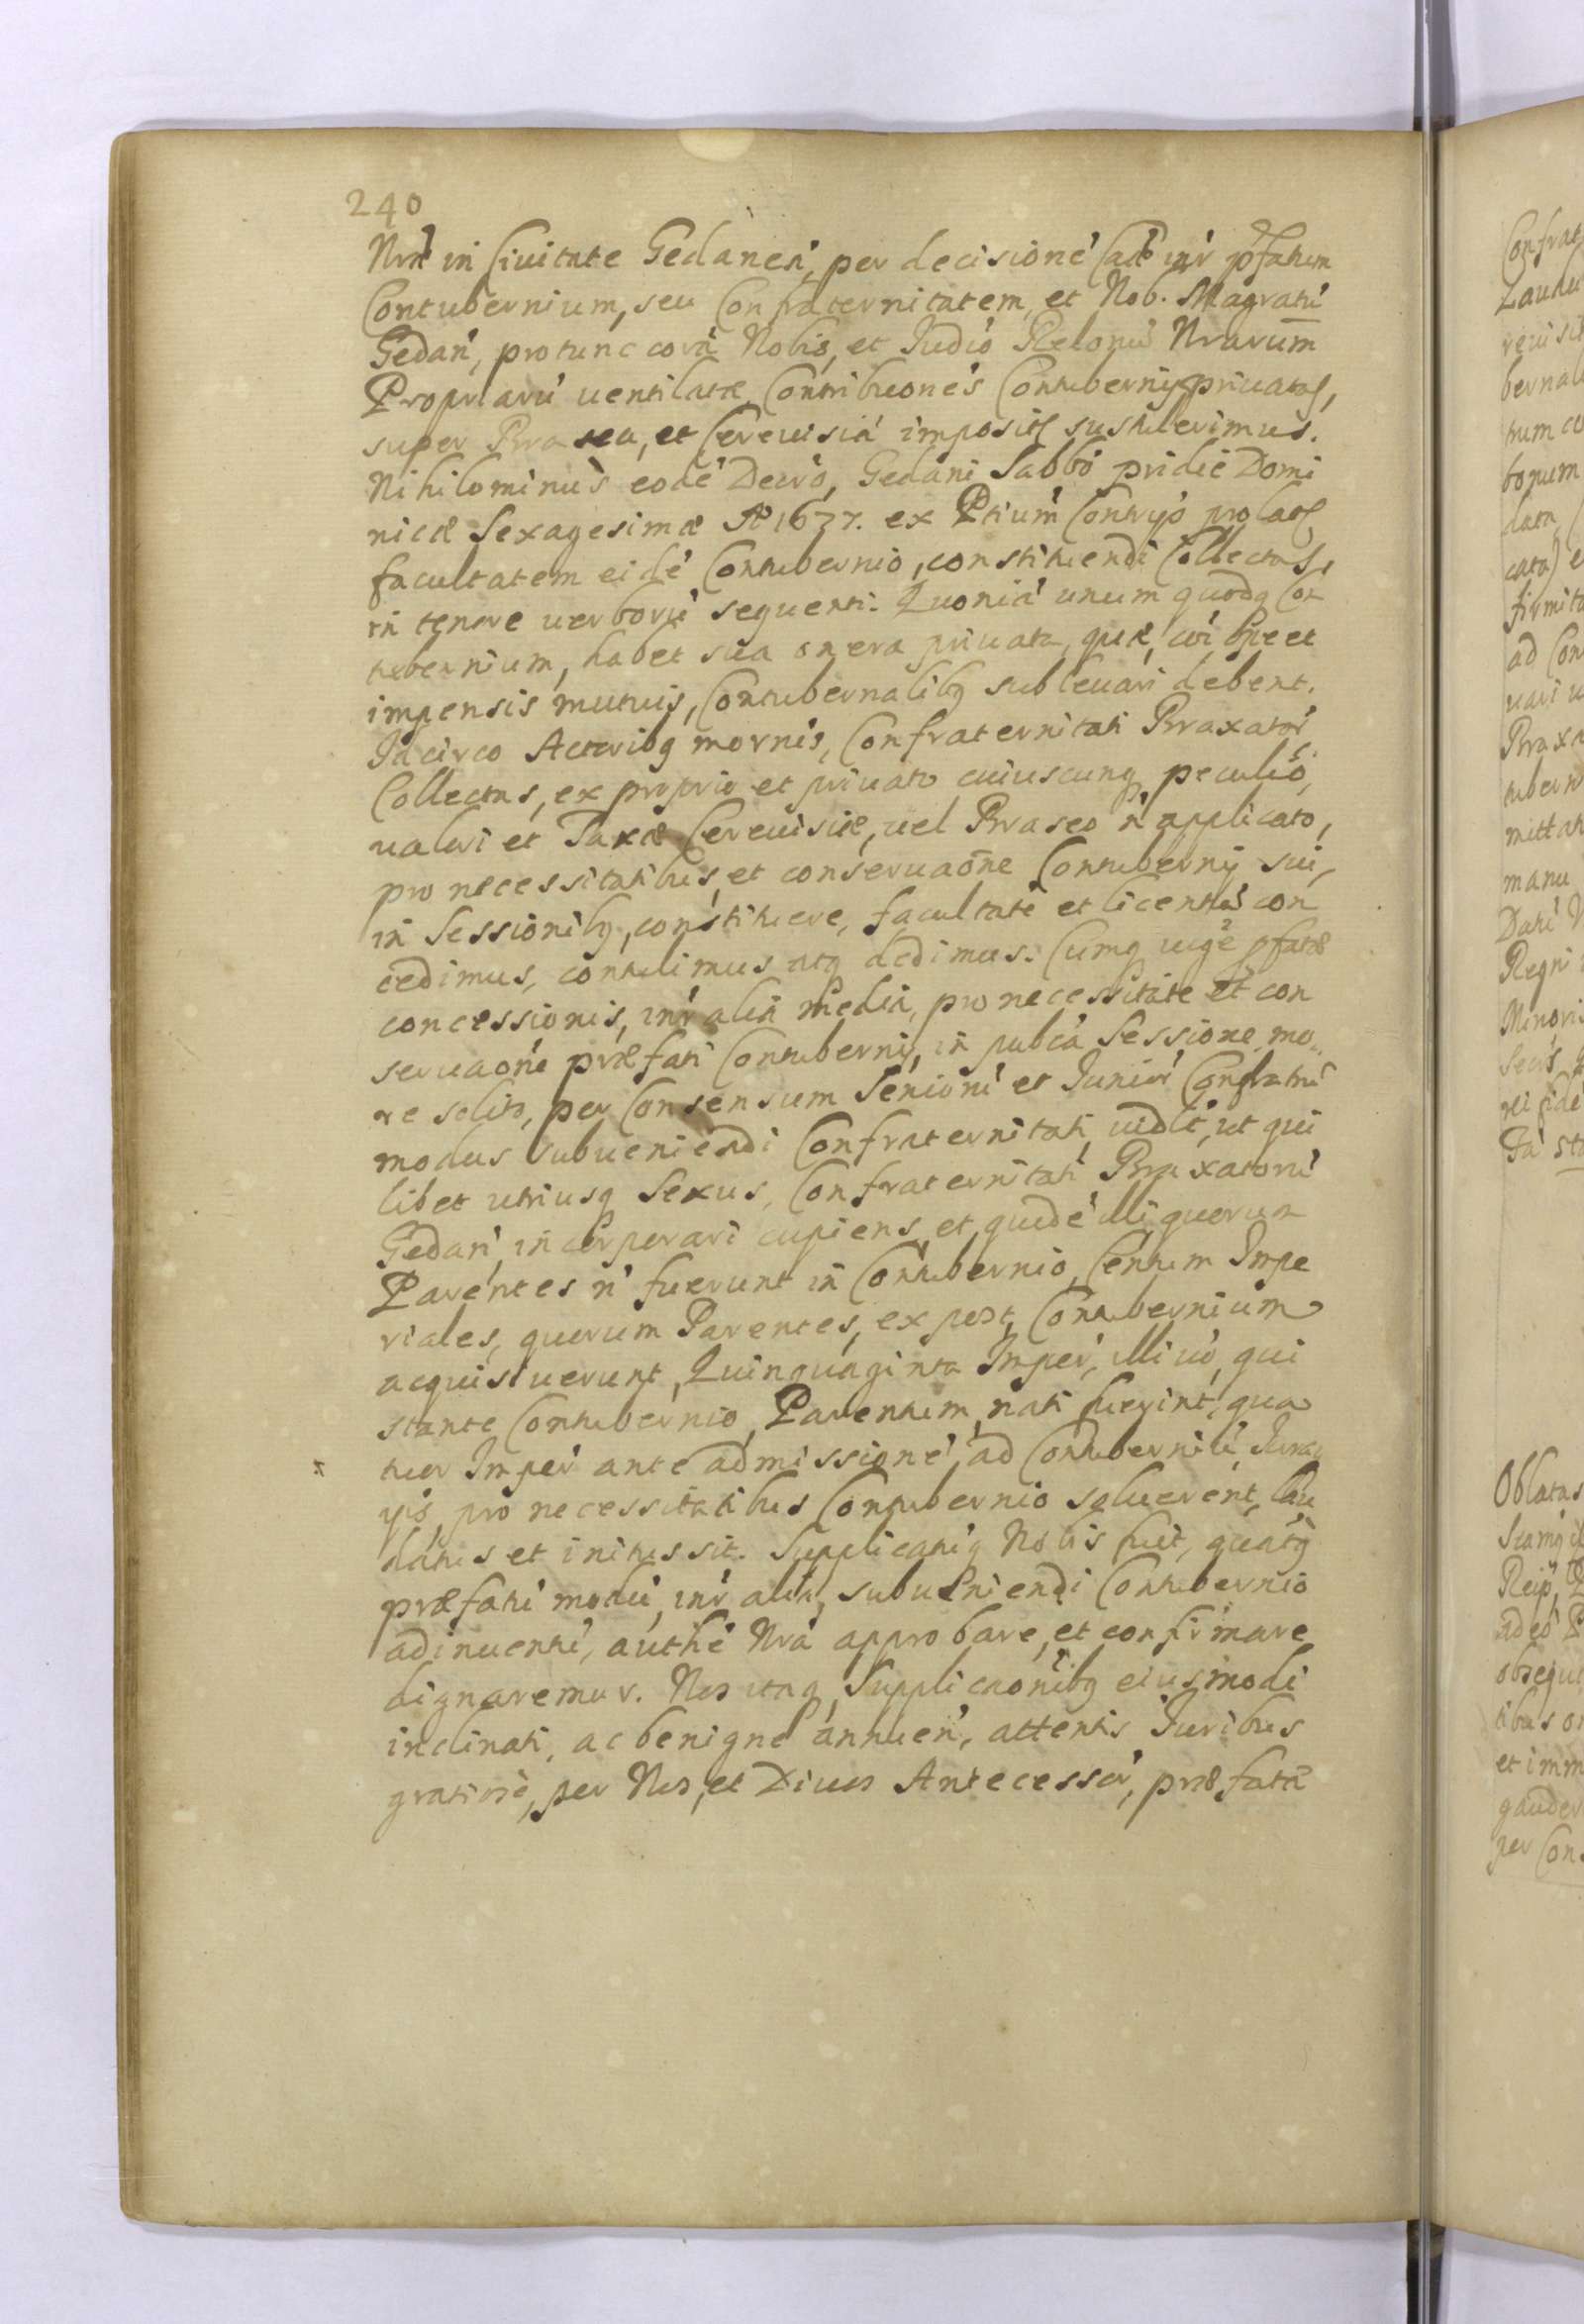 240
Nrã in Civitate Gedanen̄, per decisionē Caē inr̃ p̃fatum
Contubernium, seu Confraternitatem, et Nob. Magratū
Gedan̄, protunc corā Nobis, et Iudiõ Relonū Nrarum
Propriarū ventilatæ, Contribuones Contubernij privatas,
super Brasea, et Cerevisiā imposit, sustulerimus.
Nihilominùs eodē Decr̃o, Gedani Sabbõ pridie Domi
nicæ Sexagesimæ Aº 1677. ex Ptium Contrijo prolat,
facultatem eidē Contubernio, constituendi Collectas,
in tenore verborū sequenti. Quoniā unum quodq Con
tubernium, habet sua onera privata, quæ, cõi ope et
impensis mutuis, Contubernalibq sublevari debent.
Idcirco Actoribq mornis, Confraternitati Braxator̄
Collectas, ex proprio et privato cuiuscunq peculio,
valori et Taxæ Cerevisiæ, vel Braseo ñ applicato,
pro necessitatibus, et conservaõne Contubernij sui,
in Sessionibq, constituere, facultatē et licentiā con
cedimus, contulimus atq dedimus. Cumq vigē p̃fatæ
concessionis, inr̃ alia media, pro necessitate et con
servaõne præfati Contubernij, in pub̃ca Sessione mo
re solito, per Consensum Seniorū et Iunior̄ Confratrū
modus subveniendi Confraternitati, vidl̃t, ut qui
libet utriusq Sexus, Confraternitati Braxatorū
Gedan̄, incorporari cupiens, et quidē illi quorum
Parentes ñ fuerunt in Contubernio, Centum Impe
riales, quorum Parentes, ex post, Contubernium
acquisiverunt, Quinquaginta Imper̄, illi vò, qui
stante Contubernio, Parentum, nati fuerint, qua
tuor Imper̄ ante admissionē, ad Contuberniū,
pro necessitatibus Contubernio solverent, lau
datus et initus sit. Supplicatūq Nobis fuit, quatq
præfatū modū, inr̃ alia, subveniendi Contubernio
adinventū, authē Nrā approbare, et confirmare
dignaremur. Nos itaq Supplicaõnibq eiusmodi
inclinati, ac benigne annuen̄, attentis Iuribus
gratiosè, per Nos, et Divos Antecessor̄, præfatæ